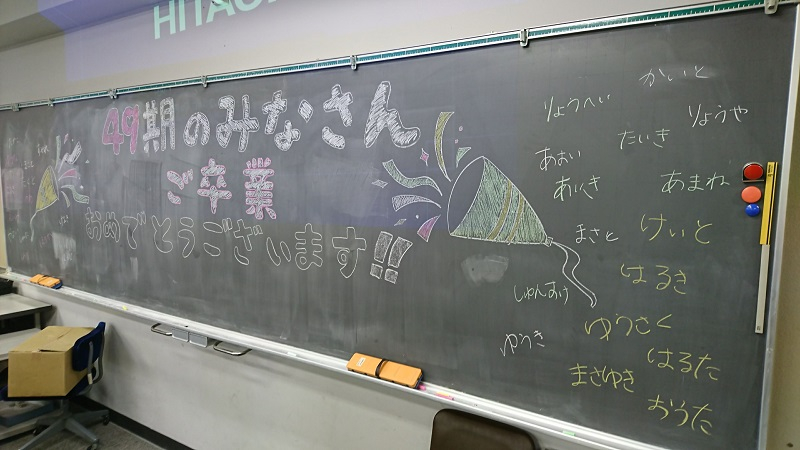 HITAC
49期のみなさん
ご卒業
おめでとうございます!!
かいと
りょうへい
りょうや
たいき
あおい
あまね
まさと
けいと
はるき
しゅんすけ
ゆうさく
ゆうき
はるた
まさゆき
おうた